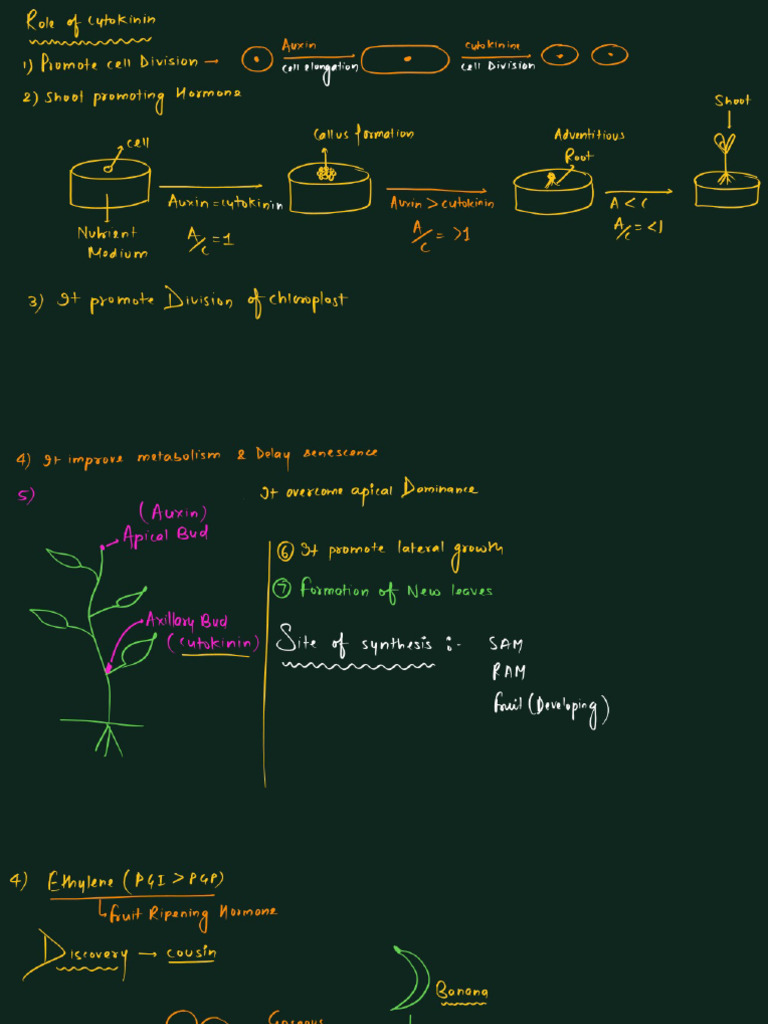 Role of cytokinin
1) Promote cell Division → Auxin cell elongation cutokinine cell Division
2) Shoot promoting Hormone
Shoot
cell
Callus formation
Adventitious Root
Auxin = cytokinin
Auxin > cutokinin
A < C
Nutrient Medium
A/C = 1
A/C = >1
A/C = <1
3) It promote Division of chloroplast
4) It improve metabolism & Delay senescence
5) It overcome apical Dominance
(Auxin)
Apical Bud
Axillary Bud
(cutokinin)
⑥ It promote lateral growth
⑦ Formation of New leaves
Site of synthesis :- SAM
RAM
fruit (Developing)
4) Ethylene (PGI > PGP)
fruit Ripening Hormone
Discovery → cousin
Banana